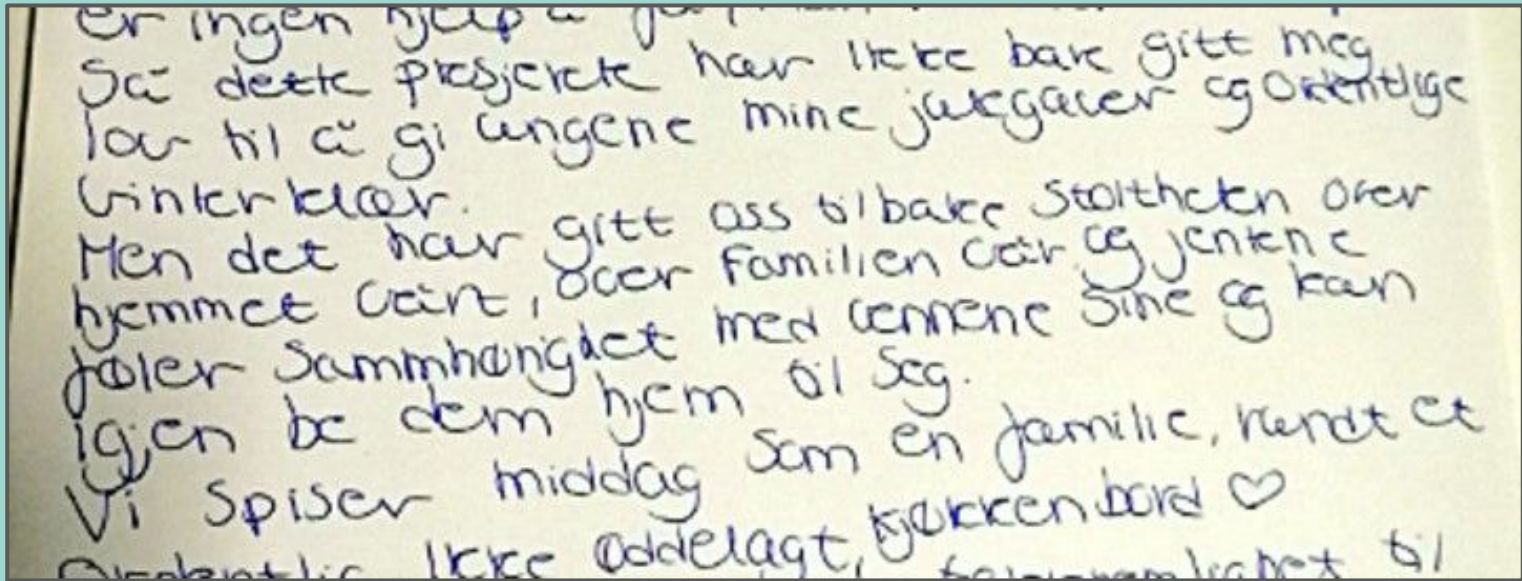 er ingen hjelp å
Så dette prosjekte har ikke bare gitt meg
lov til å gi ungene mine julegaver og ordentlige
vinterklær.
Men det har gitt oss tilbake stoltheten over
hjemmet vårt, over familien vår og jentene
føler sammhøngdet med vennene sine og kan
igjen be dem hjem til seg.
Vi spiser middag som en familie, rundt et
Ordentlig ikke øddelagt, kjøkkenbord ♡
til